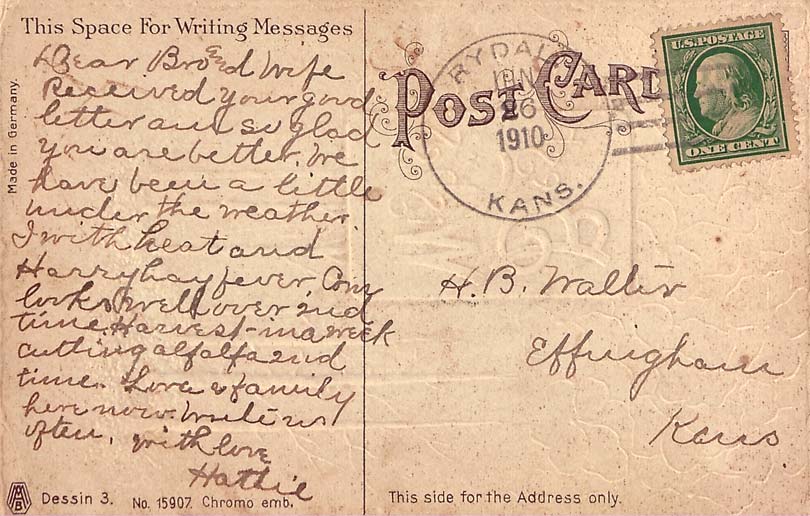 This Space For Writing Messages
Dear Bro & Wife
Received your good
letter am so glad
you are better. We
have been a little
under the weather
I with heat and
Harry hay fever. Corn
looks well over 2nd
time. Harvest in a week
cutting alfalfa 2nd
time. Love & family
here now. Write us
often, with love
Hattie
Made in Germany.
Dessin 3. No. 15907. Chromo emb.
POST CARD
RYDAL
JUN
26
1910
KANS.
U.S. POSTAGE
ONE CENT
H. B. Walter
Effingham
Kans
This side for the Address only.